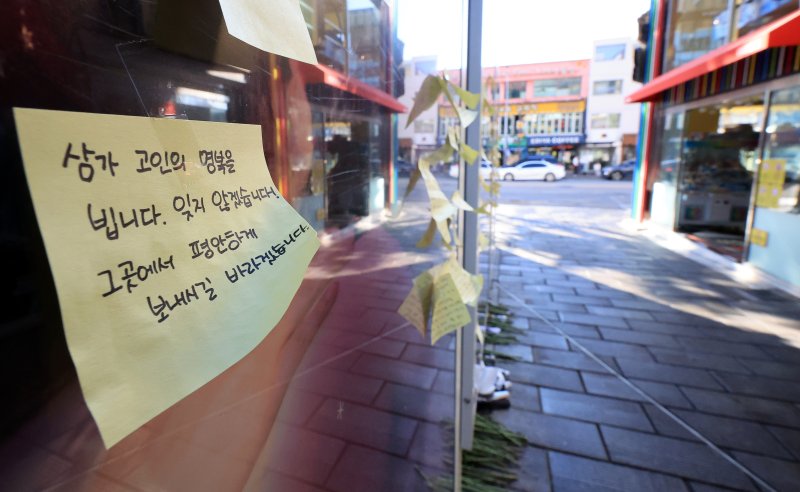 삼가 고인의 명복을
빕니다. 잊지 않겠습니다!
그곳에서 평안하게
보내시길 바라겠습니다.